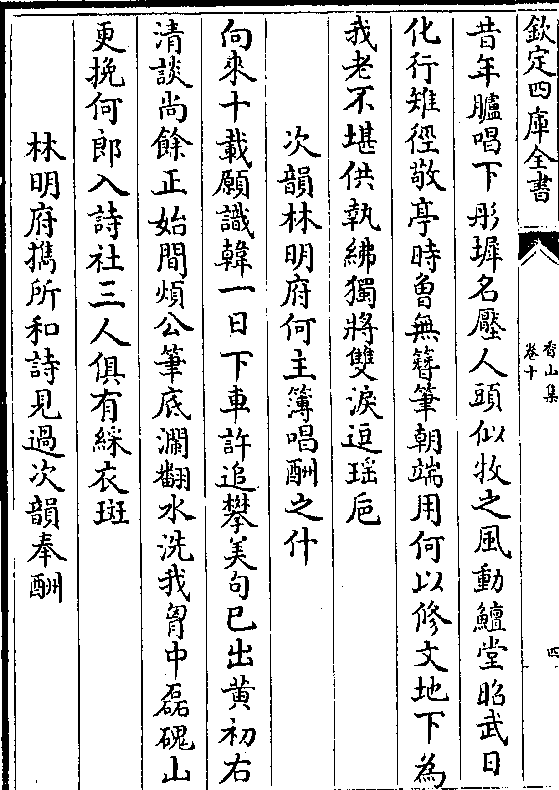 欽定四庫全書
香山集
卷十
四
昔年臚唱下彤墀名壓人頭似牧之風動鱣堂昭武日
化行雉徑敬亭時曾無簪筆朝端用何以修文地下為
我老不堪供執紼獨將雙淚迸瑶巵
次韻林明府何主簿唱酬之什
向來十載願識韓一日下車許追攀美句已出黄初右
清談尚餘正始間煩公筆底瀾翻水洗我胷中磊磈山
更挽何郎入詩社三人俱有綵衣斑
林明府攜所和詩見過次韻奉酬